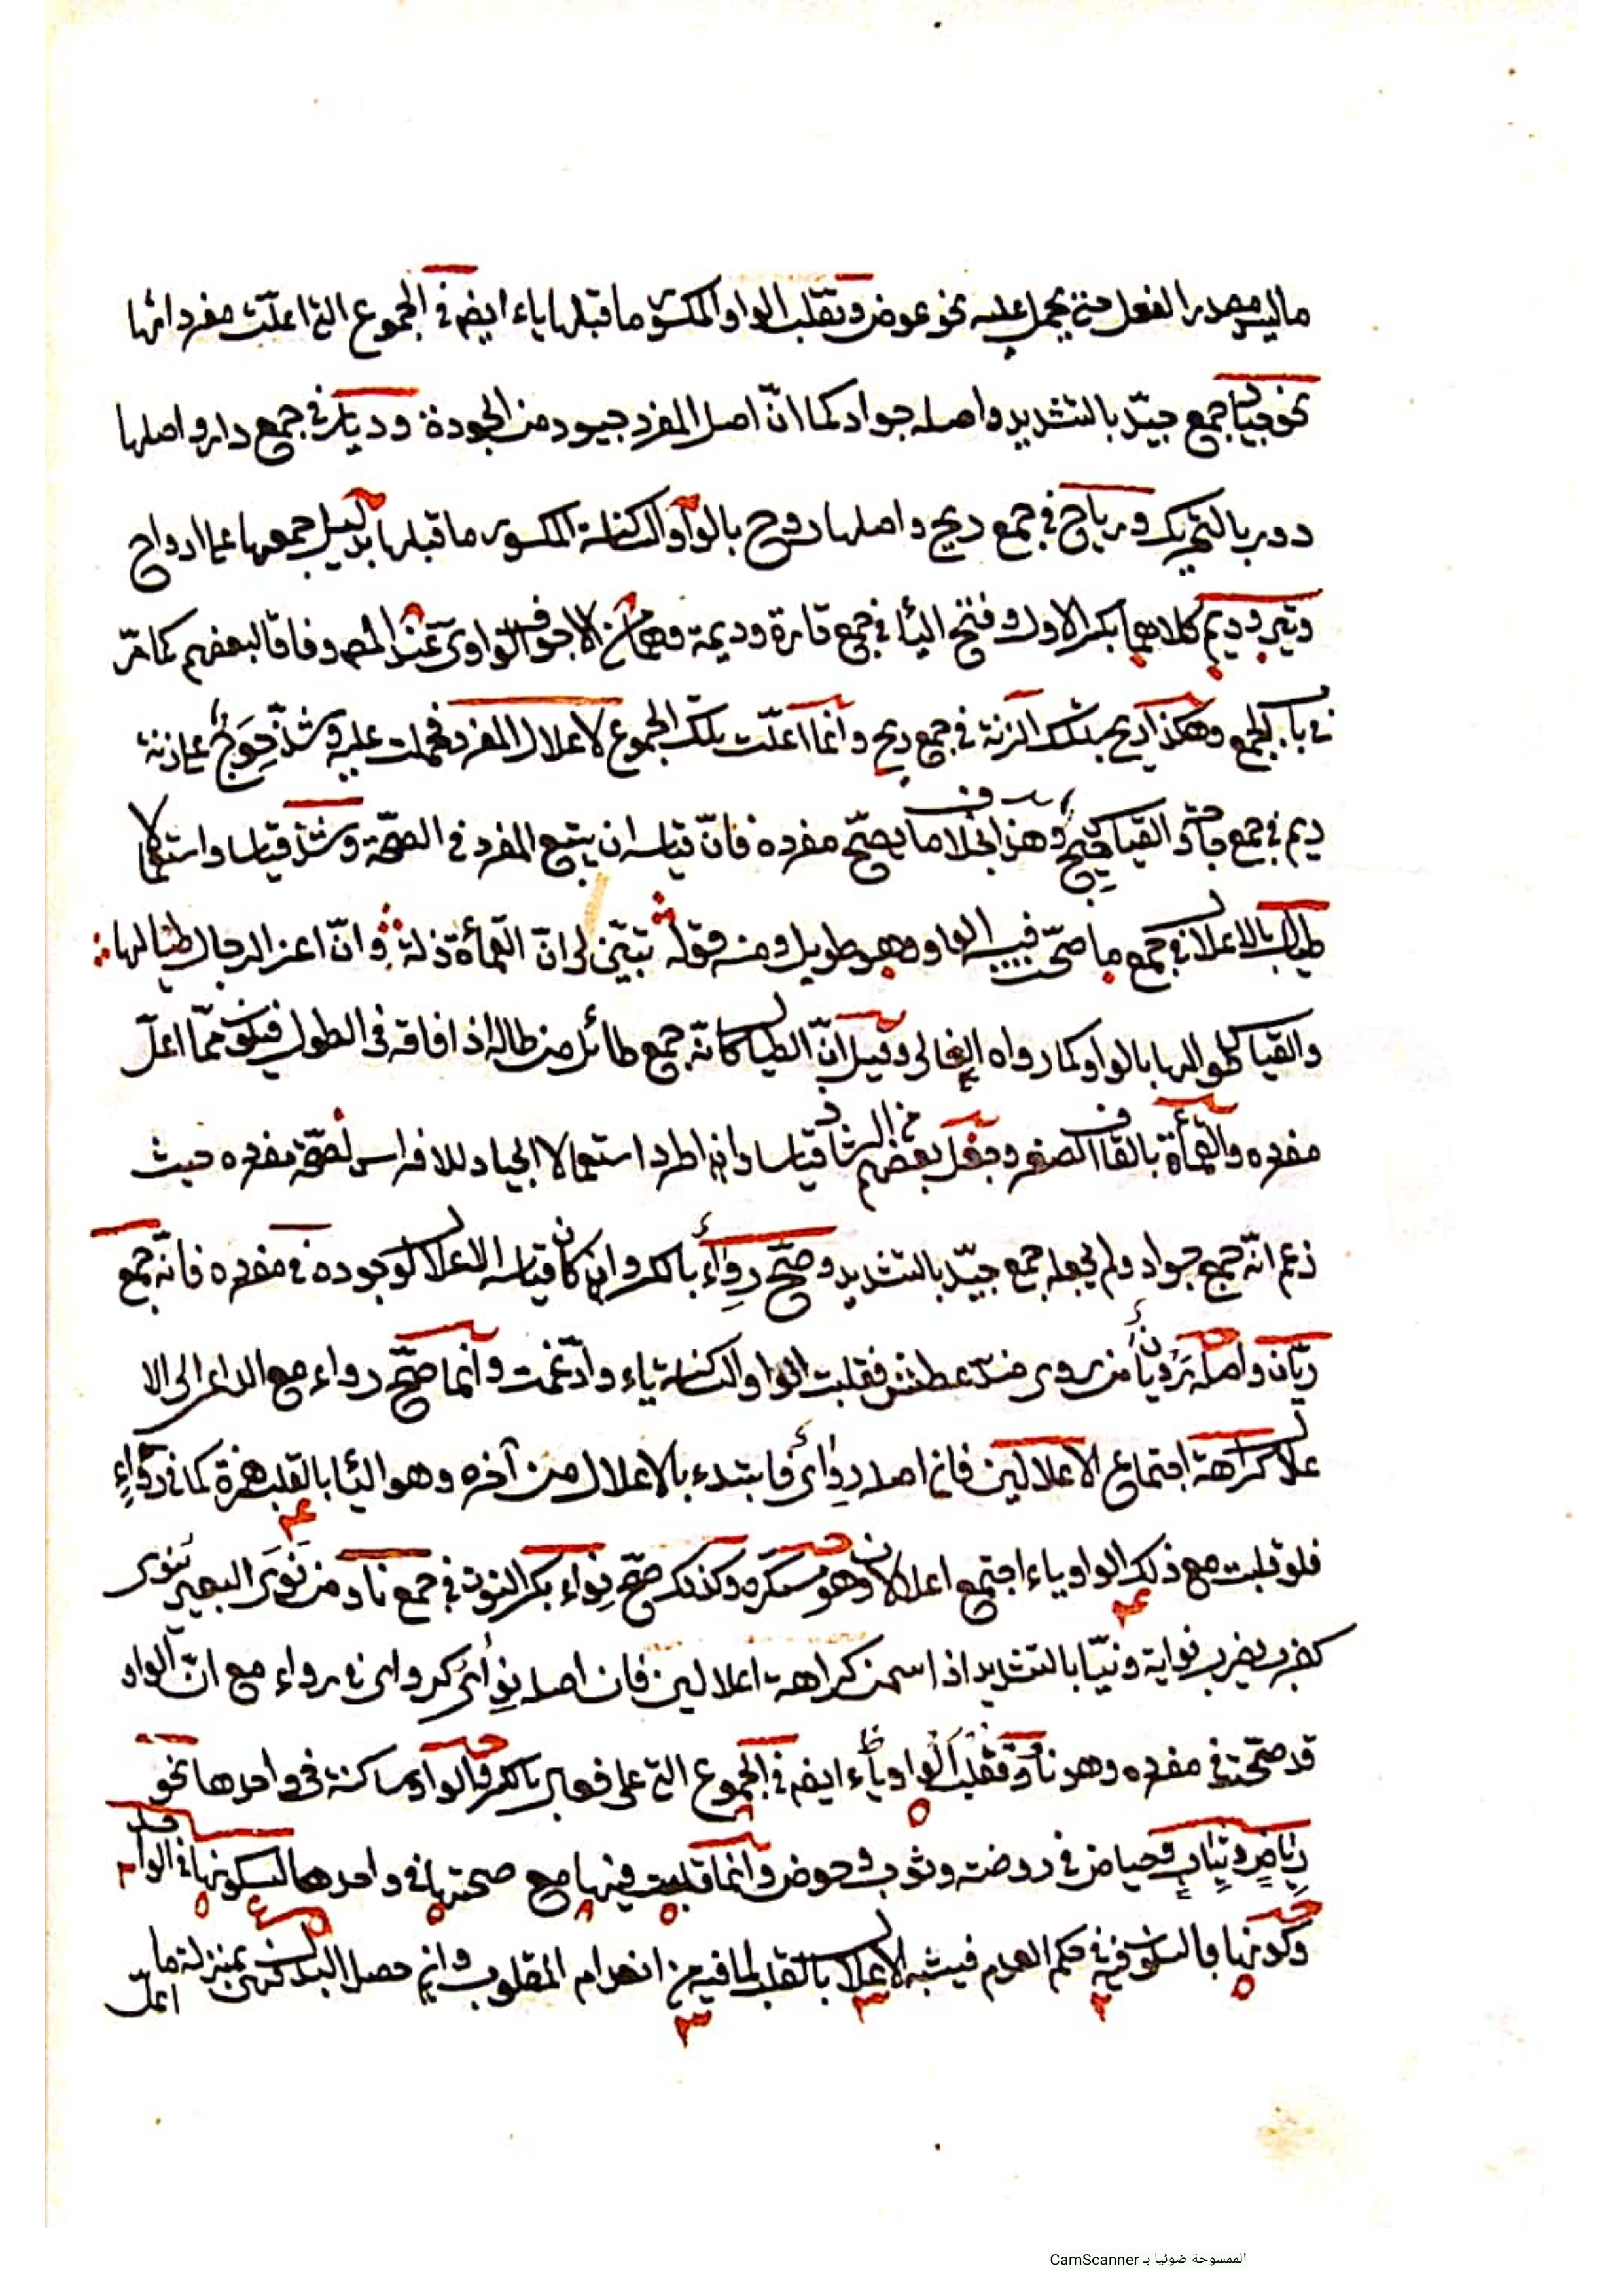 ما ليس مصدر الفعل حتى يحمل عليه نحو عوض وتقلب الواو المكسور ما قبلها ياء ايضا في الجموع التي اعلّت مفرداتها
نحو جياد جمع جيّد بالتشديد واصله جواد كما انّ اصل المفرد جيود من الجودة وديار في جمع دار واصلها
دور بالتحريك ورياح في جمع ريح واصلها روح بالواو الساكنة المكسور ما قبلها بدليل جمعها على ارواح
وتير وديم كلاهما بكسر الاول وفتح اليا في جمع تارة وديمة وهما من الاجوف الواوى عند المص وفاقا لبعضهم كما مرّ
في باب الجمع وهكذا ريح بتلك الزنة في جمع ريح وانما اعلّت تلك الجموع لاعلال المفرد فحملت عليه وشذّ حِوَج على زنة
ديم في جمع حاجة والقياس حيج وهذا بخلاف ما يصحّ مفرده فانّ قياسه ان يتبع المفرد في الصحّة وشذّ قياسا واستعمالا
طيال بالاعلال في جمع ما صحّت فيه الواو وهو طويل ومنه قوله تبيّن لى انّ القماءة ذلة وانّ اعز الرجال طيالها
والقياس طوالها بالواو كما رواه القالى وقيل انّ الطيال كانّه جمع طائل من طاله اذا فاقه في الطول فيكون ممّا اعلّ
مفرده والقماءة بالقاف الصغر وجعل بعضهم من الشاذ قياسا وان اطرد استعمالا الجياد للافراس لصحّة مفرده حيث
زعم انّه جمع جواد ولم يجعله جمع جيّد بالتشديد وصحّ رِواء بالكسر وان كان قياسه الاعلال لوجوده في مفرده فانّه جمع
ريّان واصله رويان من روى ضدّ عطش فقلبت الواو الساكنة ياء وادّغمت وانما صحّ رواء مع الداعى الى الا
علال كراهة اجتماع الاعلالين فان اصله رِواى فابتدء بالاعلال من آخره وهو اليا بالقلب همزة كما في رداء
فلو قلبت مع ذلك الواو ياء اجتمع اعلالان وهو مستكره وكذلك صحّ نِواء بكسر النون في جمع ناو من نَوَى البعير ينوى
كضرب يضرب نواية ونيّا بالتشديد اذا سمن كراهة اعلالين فان اصله نِواى كرواى في رواء مع انّ الواو
قد صحّت في مفرده وهو ناو وتقلب الواو ياء ايضا في الجموع التي على فعال بالكسر والواو ساكنة في واحدها نحو
رياض وثياب وحياض في روضة وثوب وحوض وانما قلبت فيها مع صحتها في واحدها لسكونها في الواحد
وكونها بالسكون فيه في حكم العدم فيشبه الاعلال بالقلب لما فيه من انعدام المقلوب وان حصل البدل فهى بمنزلة ما
اعلّ
الممسوحة ضوئيا بـ CamScanner